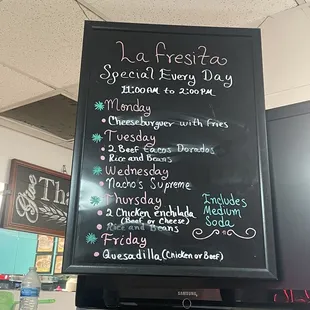 La fresita
Special Every Day
11:00AM to 2:00PM
Monday
Cheeseburguer with fries
Tuesday
2 Beef tacos Dorados
Rice and Beans
Wednesday
Nacho's Supreme
Thursday
2 Chicken enchilada
(Beef or Cheese)
Rice and Beans
Friday
Quesadilla (Chicken or Beef)
Includes
Medium
Soda
Give Tha
SAMSUNG